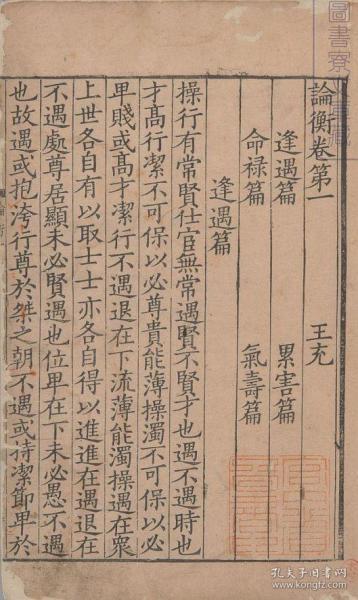 論衡卷第一
王充
逢遇篇
累害篇
命祿篇
氣壽篇
逢遇篇
操行有常賢仕宦無常遇賢不賢才也遇不遇時也
才高行潔不可保以必尊貴能薄操濁不可保以必
卑賤或高才潔行不遇退在下流薄能濁操遇在衆
上世各自有以取士士亦各自得以進進在遇退在
不遇處尊居顯未必賢遇也位卑在下未必愚不遇
也故遇或抱洿行尊於桀之朝不遇或持潔節卑於
圖書寮
孔夫子旧书网